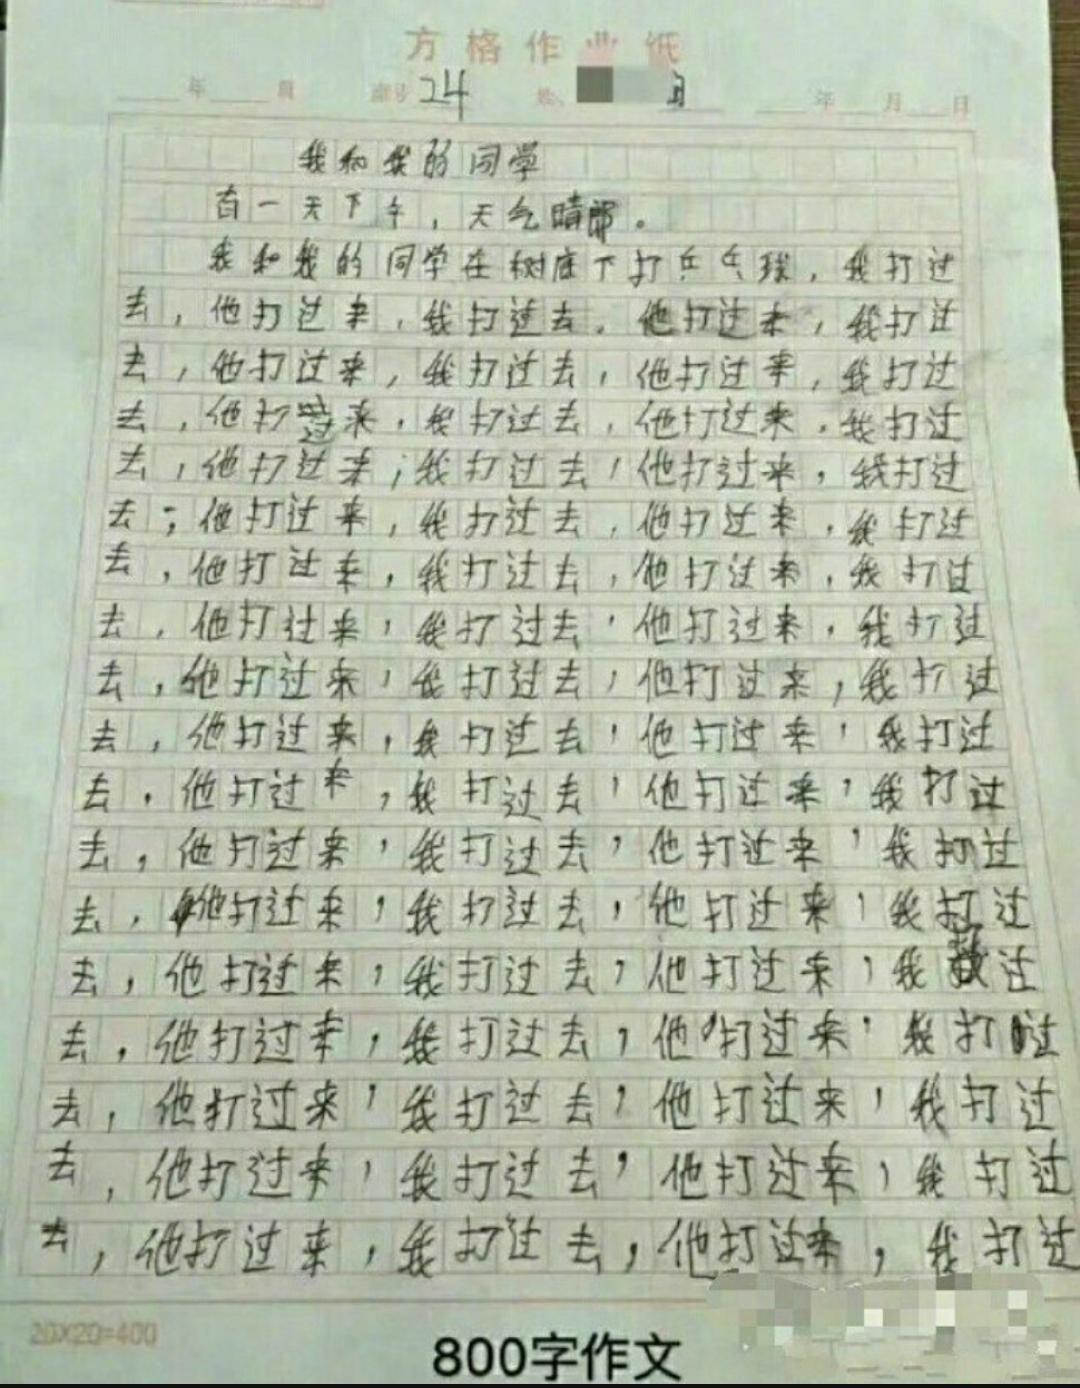 方格作业纸
年 座号 24 年 月 日
我和我的同学
有一天下午，天气晴朗。
我和我的同学在树底下打乒乓球，我打过
去，他打过来，我打过去，他打过来，我打过
去，他打过来，我打过去，他打过来，我打过
去，他打过来，我打过去，他打过来，我打过
去，他打过来，我打过去，他打过来，我打过
去，他打过来，我打过去，他打过来，我打过
去，他打过来，我打过去，他打过来，我打过
去，他打过来，我打过去，他打过来，我打过
去，他打过来，我打过去，他打过来，我打过
去，他打过来，我打过去，他打过来，我打过
去，他打过来，我打过去，他打过来，我打过
去，他打过来，我打过去，他打过来，我打过
去，他打过来，我打过去，他打过来，我打过
去，他打过来，我打过去，他打过来，我过
去，他打过来，我打过去，他打过来，我打过
去，他打过来，我打过去，他打过来，我打过
去，他打过来，我打过去，他打过来，我打过
去，他打过来，我打过去，他打过来，我打过
20X20=400
800字作文